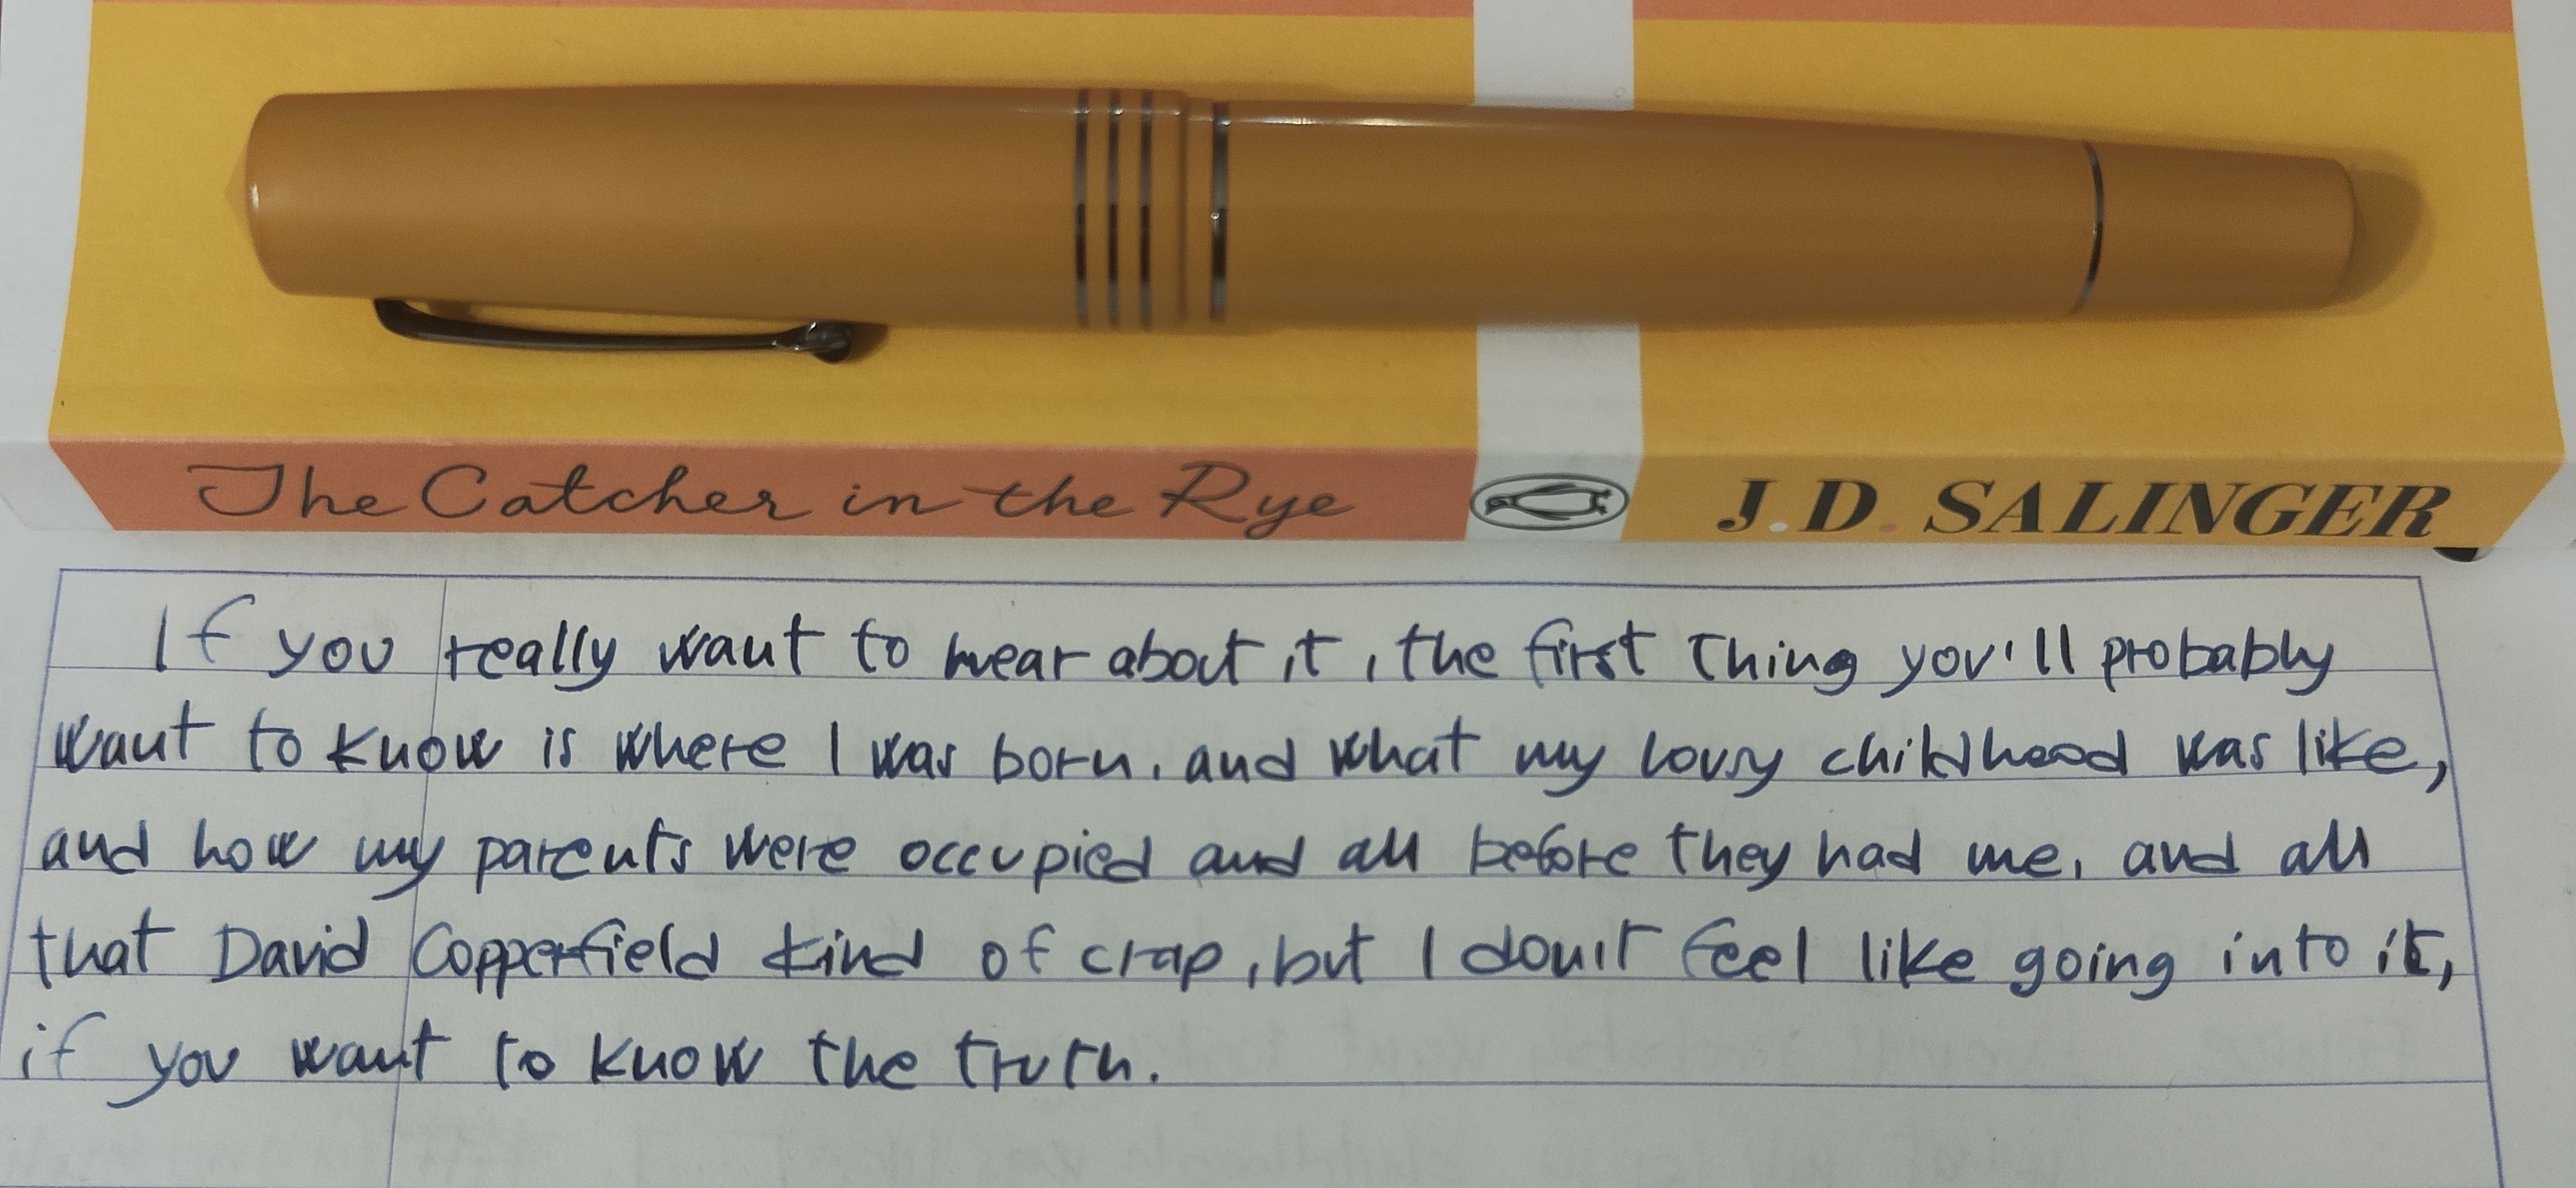 The Catcher in the Rye J.D. SALINGER
If you really want to hear about it, the first thing you'll probably
want to know is where I was born, and what my lousy childhood was like,
and how my parents were occupied and all before they had me, and all
that David Copperfield kind of crap, but I don't feel like going into it,
if you want to know the truth.